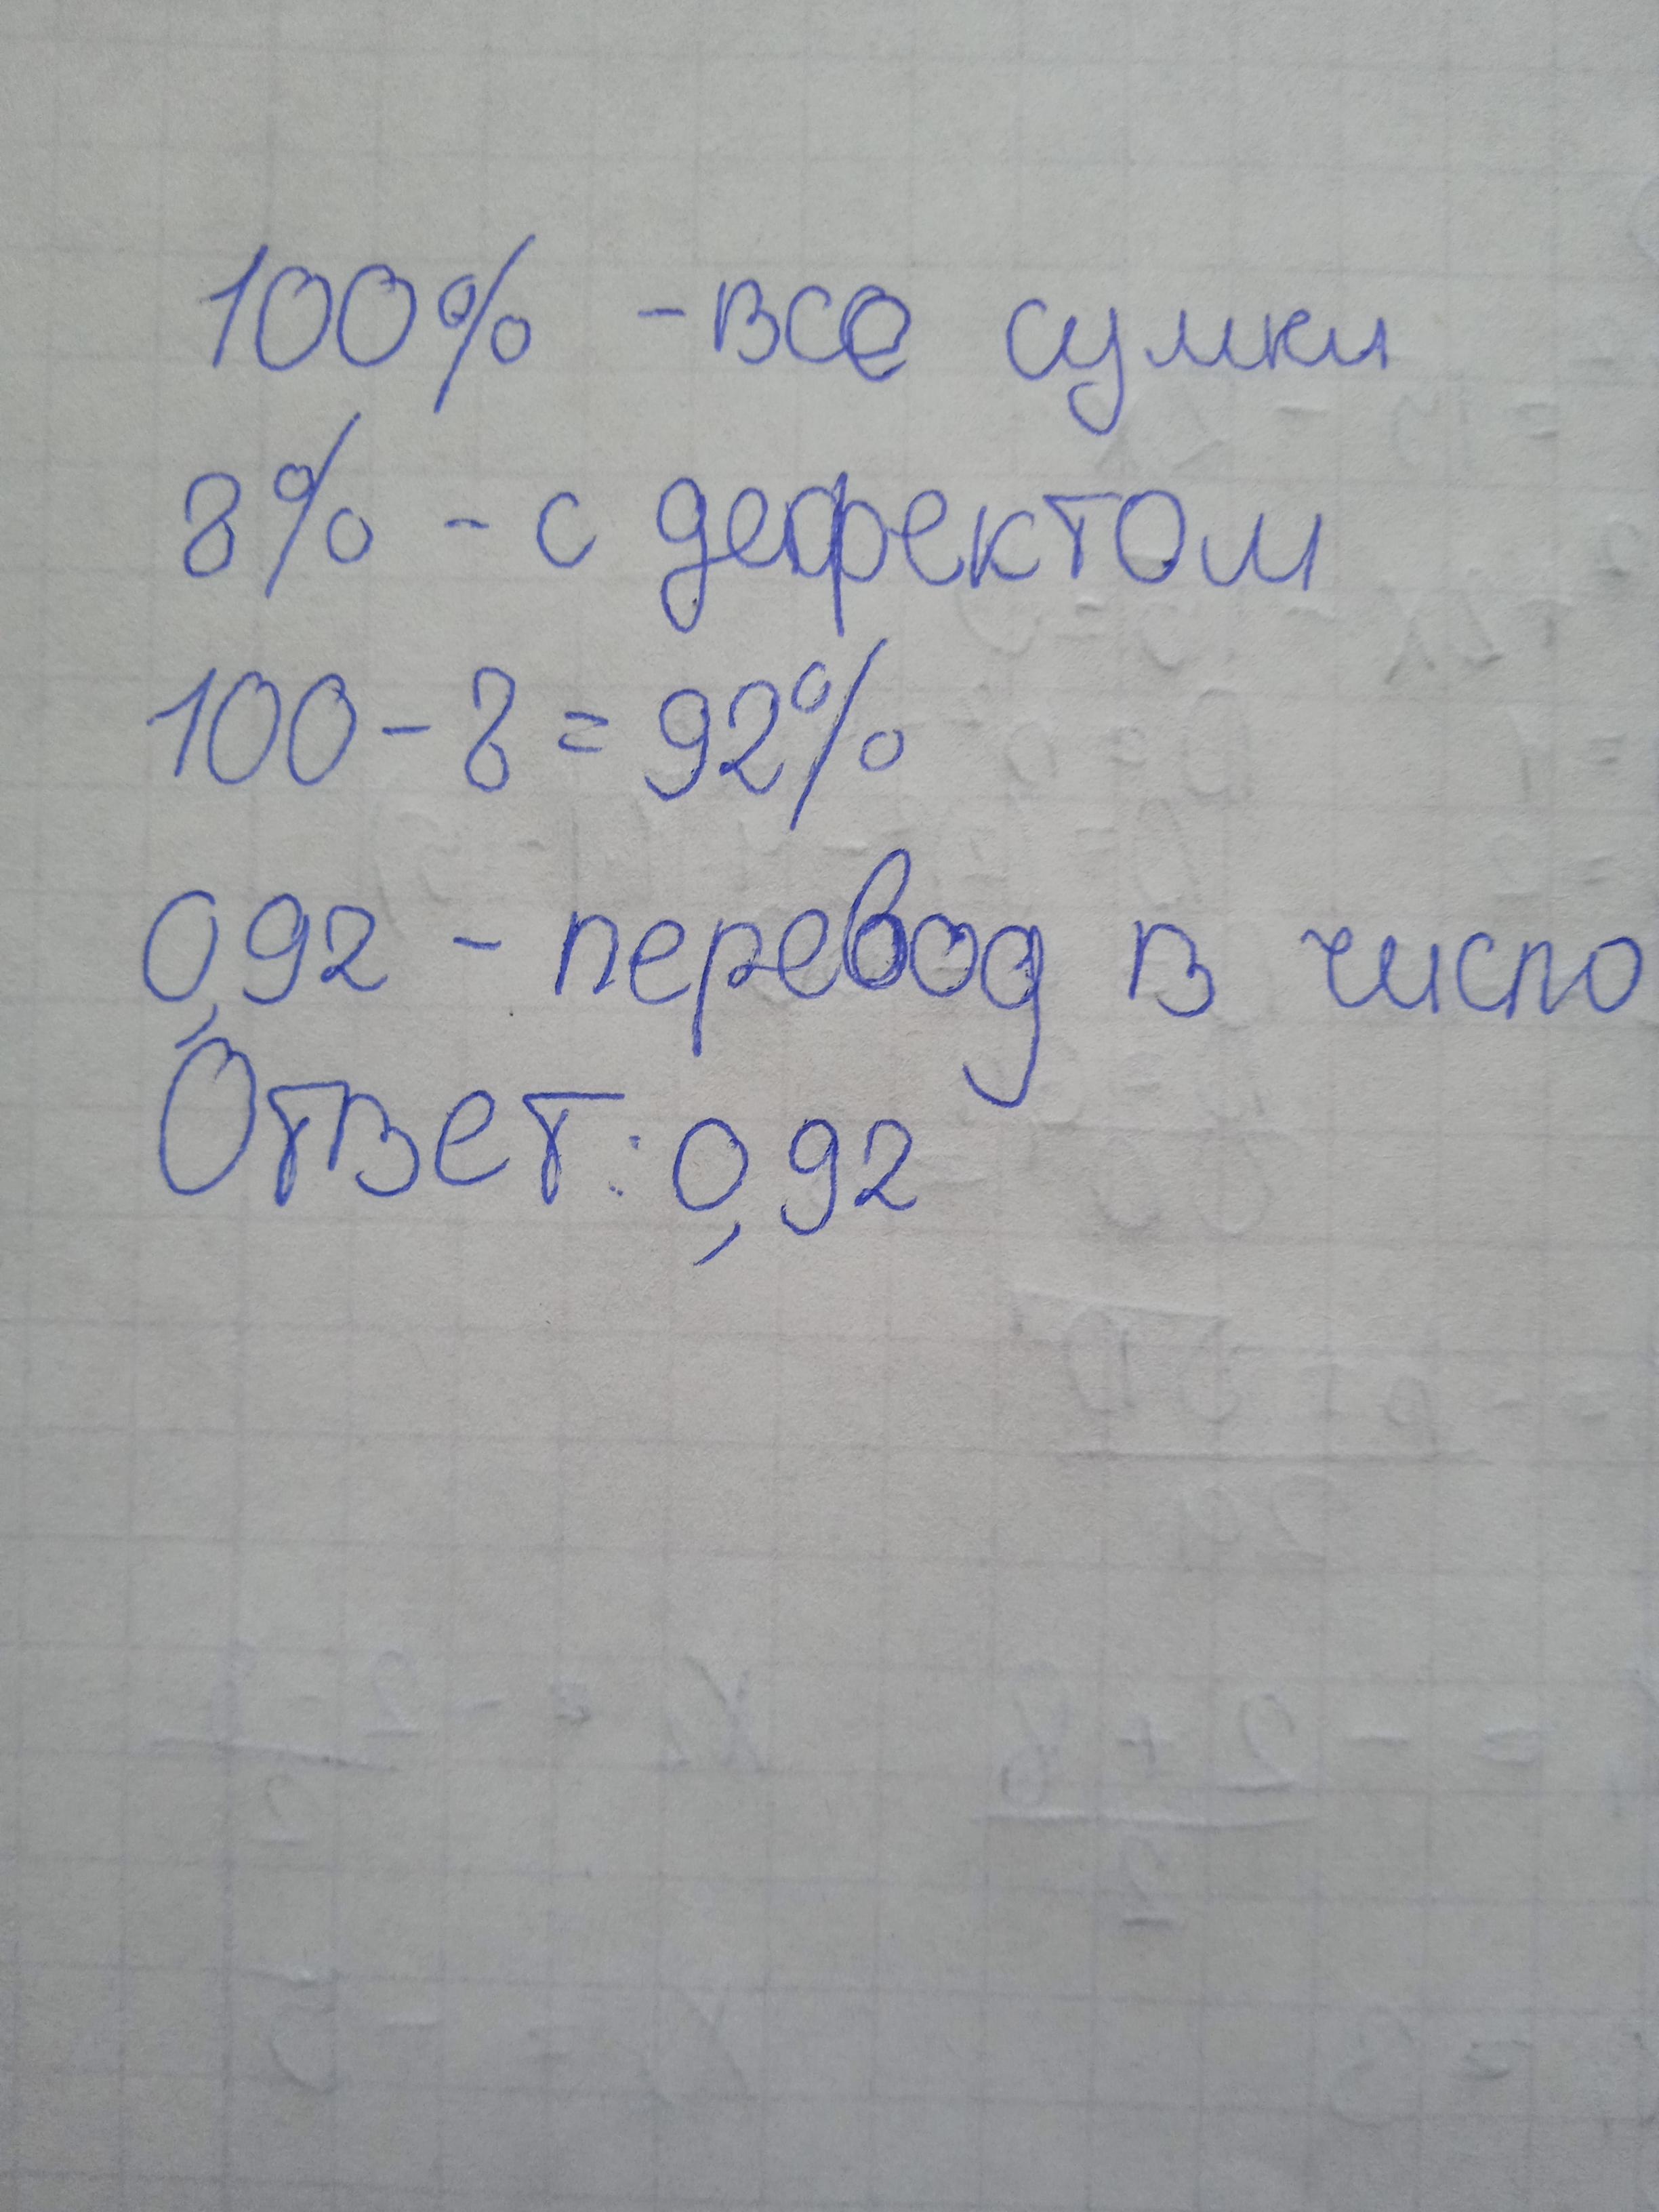 100% - все сумки
8% - с дефектом
100 - 8 = 92%
0,92 - перевод в число
Ответ: 0,92